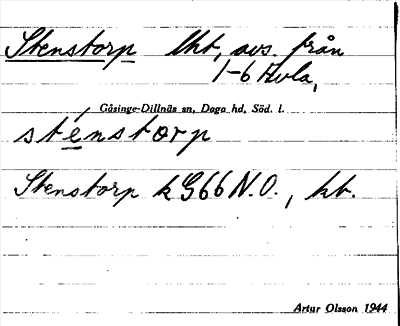 Stenstorp lht, avs. från
1-6 Avla,
Gåsinge-Dillnäs sn, Daga hd, Söd. l.
sténstorp
Stenstorp k G66 N.O., kb.
Artur Olsson 1944